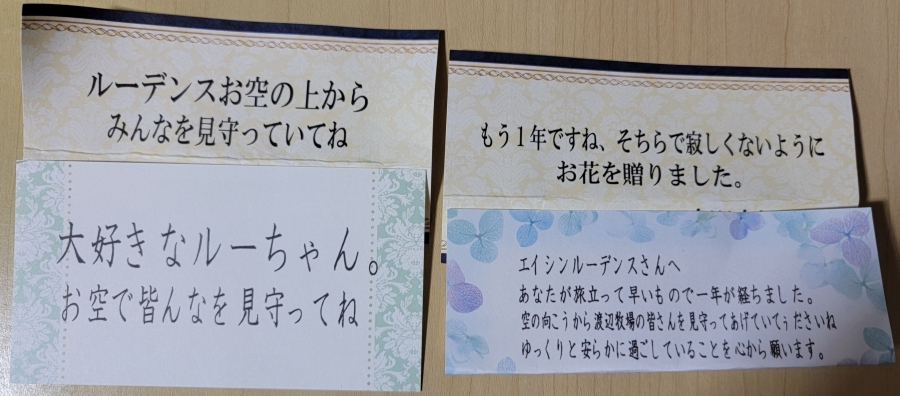 ルーデンスお空の上から
みんなを見守っていてね
大好きなルーちゃん。
お空で皆んなを見守ってね
もう1年ですね、そちらで寂しくないように
お花を贈りました。
エイシンルーデンスさんへ
あなたが旅立って早いもので一年が経ちました。
空の向こうから渡辺牧場の皆さんを見守ってあげていてぅださいね
ゆっくりと安らかに過ごしていることを心から願います。